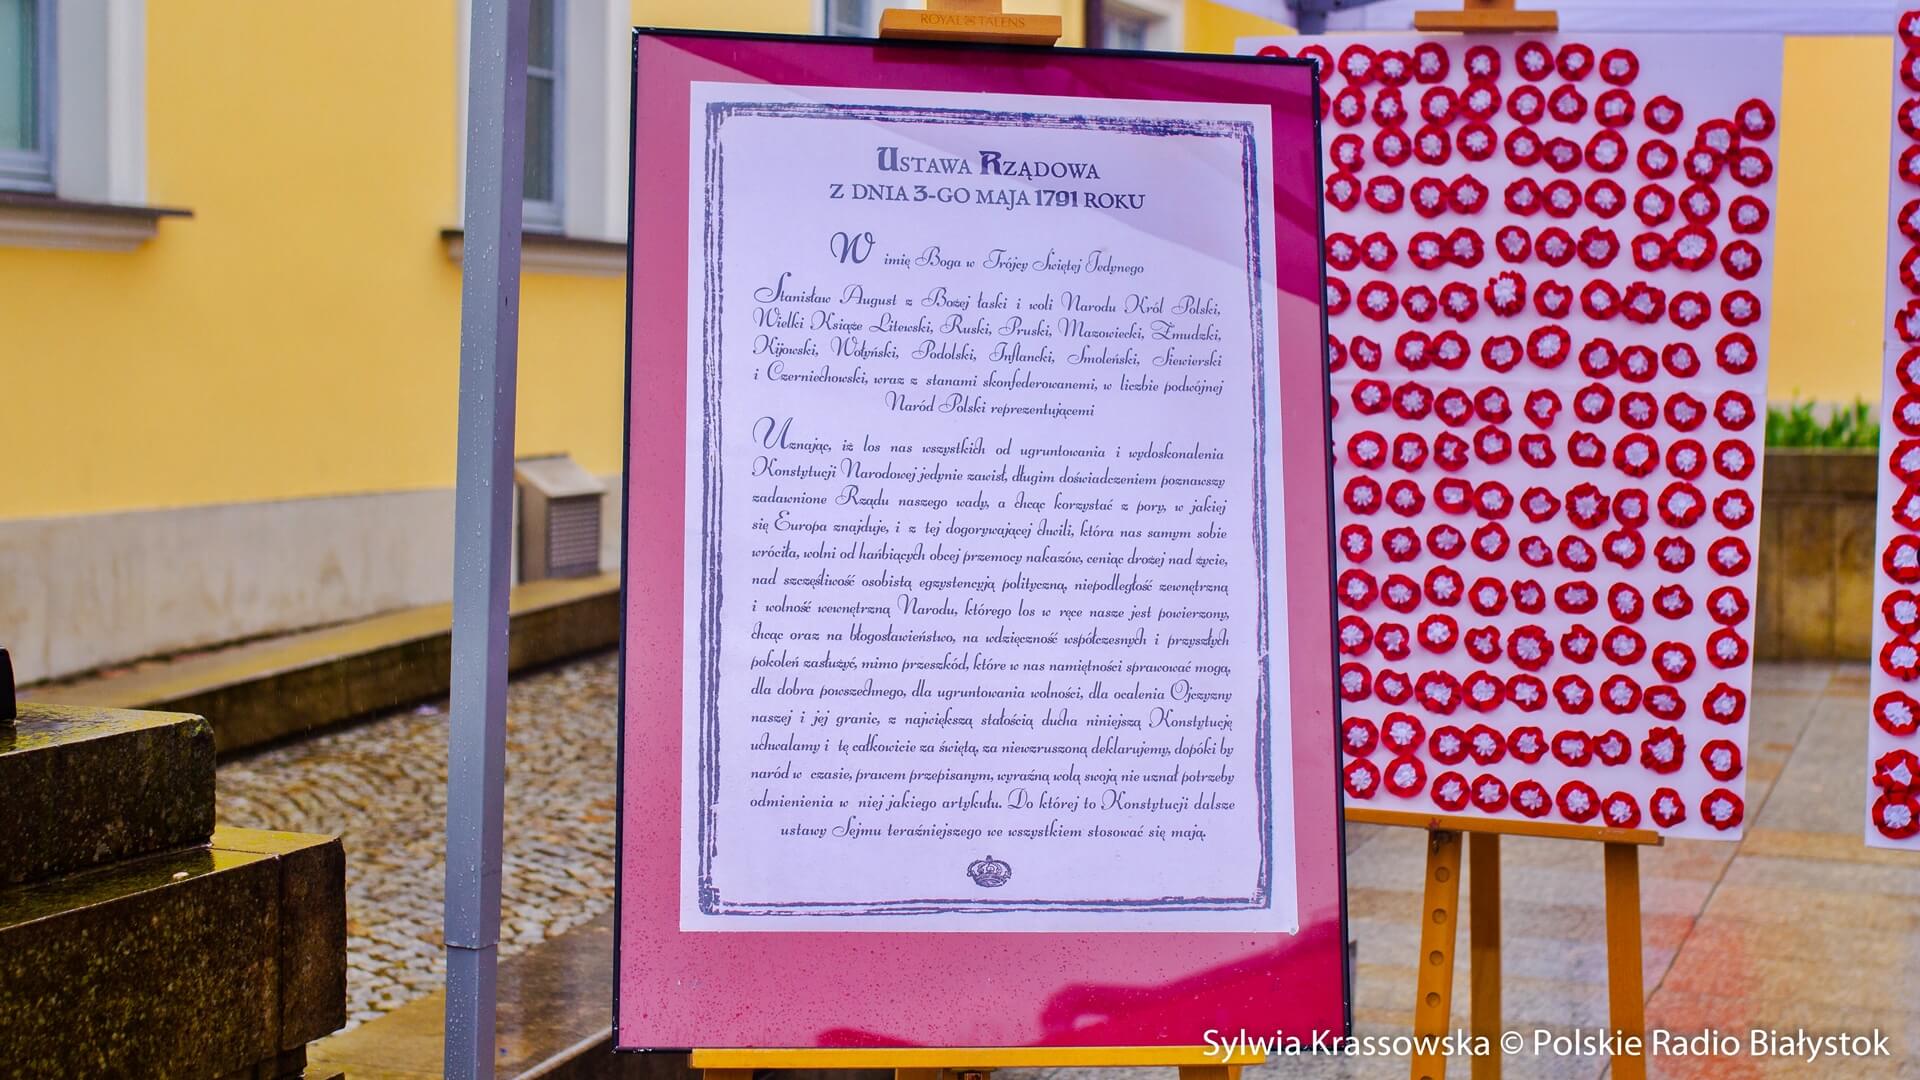 ROYAL TALENS
USTAWA RZĄDOWA
Z DNIA 3-GO MAJA 1791 ROKU
W imię Boga w Trójcy Świętej Jedynego
Stanisław August z Bożej łaski i woli Narodu Król Polski,
Wielki Książe Litewski, Ruski, Pruski, Mazowiecki, Żmudzki,
Kijowski, Wołyński, Podolski, Inflancki, Smoleński, Siewierski
i Czerniechowski, wraz z stanami skonfederowanemi, w liczbie podwójnej
Naród Polski reprezentującemi
Uznając, iż los nas wszystkich od ugruntowania i wydoskonalenia
Konstytucji Narodowej jedynie zawisł, długim doświadczeniem poznawszy
zadawnione Rządu naszego wady, a chcąc korzystać z pory, w jakiej
się Europa znajduje, i z tej dogorywającej chwili, która nas samym sobie
wróciła, wolni od hańbiących obcej przemocy nakazów, ceniąc drożej nad życie,
nad szczęśliwość osobistą egzystencyją polityczną, niepodległość zewnętrzną
i wolność wewnętrzną Narodu, którego los w ręce nasze jest powierzony,
chcąc oraz na błogosławieństwo, na wdzięczność współczesnych i przyszłych
pokoleń zasłużyć, mimo przeszkód, które w nas namiętności sprawować mogą,
dla dobra powszechnego, dla ugruntowania wolności, dla ocalenia Ojczyzny
naszej i jej granic, z największą stałością ducha niniejszą Konstytucję
uchwalamy i tę całkowicie za świętą, za niewzruszoną deklarujemy, dopóki by
naród w czasie, prawem przepisanym, wyraźną wolą swoją nie uznał potrzeby
odmienienia w niej jakiego artykułu. Do której to Konstytucji dalsze
ustawy Sejmu teraźniejszego we wszystkiem stosować się mają.
Sylwia Krassowska © Polskie Radio Białystok